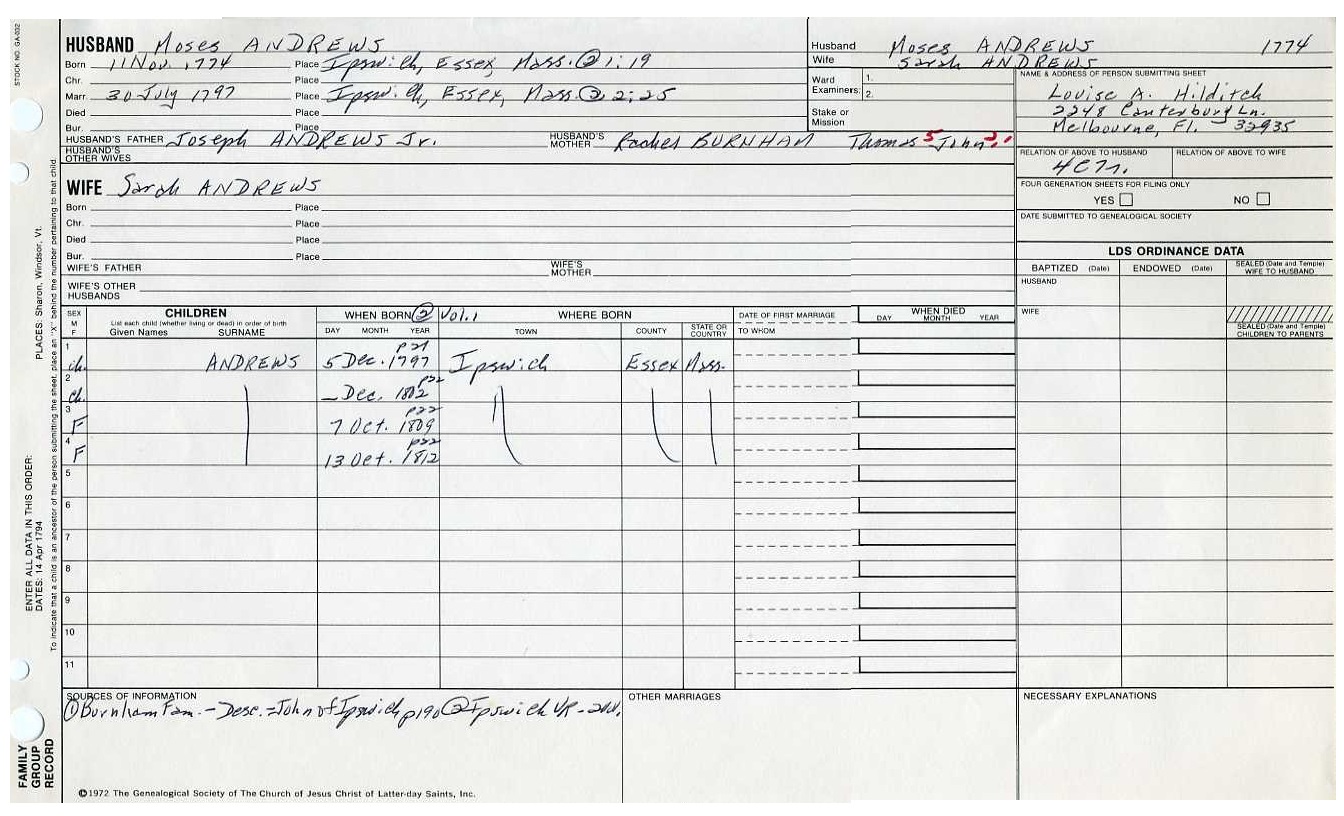 STOCK NO. GA-032
HUSBAND Moses ANDREWS
Born 11 Nov. 1774 Place Ipswich, Essex, Mass. @ 1:19
Chr. Place
Marr. 30 July 1797 Place Ipswich, Essex, Mass. @ 2:25
Died Place
Bur. Place
HUSBAND'S FATHER Joseph ANDREWS Jr. HUSBAND'S MOTHER Rachel BURNHAM Thomas 5 John 2,1
HUSBAND'S OTHER WIVES
WIFE Sarah ANDREWS
Born Place
Chr. Place
Died Place
Bur. Place
WIFE'S FATHER WIFE'S MOTHER
WIFE'S OTHER HUSBANDS
Husband Moses ANDREWS 1774
Wife Sarah ANDREWS
Ward Examiners: 1. 2.
Stake or Mission
NAME & ADDRESS OF PERSON SUBMITTING SHEET
Louise A. Hilditch
2248 Canterbury Ln.
Melbourne, Fl. 32935
RELATION OF ABOVE TO HUSBAND RELATION OF ABOVE TO WIFE
4C7r.
FOUR GENERATION SHEETS FOR FILING ONLY
YES NO
DATE SUBMITTED TO GENEALOGICAL SOCIETY
LDS ORDINANCE DATA
BAPTIZED (Date) ENDOWED (Date) SEALED (Date and Temple) WIFE TO HUSBAND
HUSBAND
WIFE
SEALED (Date and Temple) CHILDREN TO PARENTS
SEX M F CHILDREN WHEN BORN ② Vol.1 WHERE BORN DATE OF FIRST MARRIAGE WHEN DIED
List each child (whether living or dead) in order of birth
Given Names SURNAME DAY MONTH YEAR TOWN COUNTY STATE OR COUNTRY TO WHOM DAY MONTH YEAR
1 p21
ch. ANDREWS 5 Dec. 1797 Ipswich Essex Mass.
2 p22
ch. _ Dec. 1802
3 p22
F 7 Oct. 1809
4 p22
F 13 Oct. 1812
5
6
7
8
9
10
11
SOURCES OF INFORMATION OTHER MARRIAGES NECESSARY EXPLANATIONS
① Burnham Fam. - Desc. - John of Ipswich p190 ② Ipswich VR - 2Vol.
©1972 The Genealogical Society of The Church of Jesus Christ of Latter-day Saints, Inc.
FAMILY GROUP RECORD
ENTER ALL DATA IN THIS ORDER:
DATES: 14 Apr 1794 PLACES: Sharon, Windsor, Vt.
To indicate that a child is an ancestor of the person submitting the sheet, place an "X" behind the number pertaining to that child.